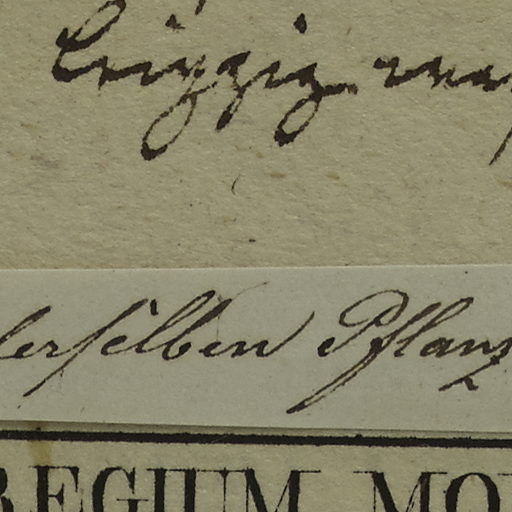 Leipzig
derselben Pflanz
REGIUM MO